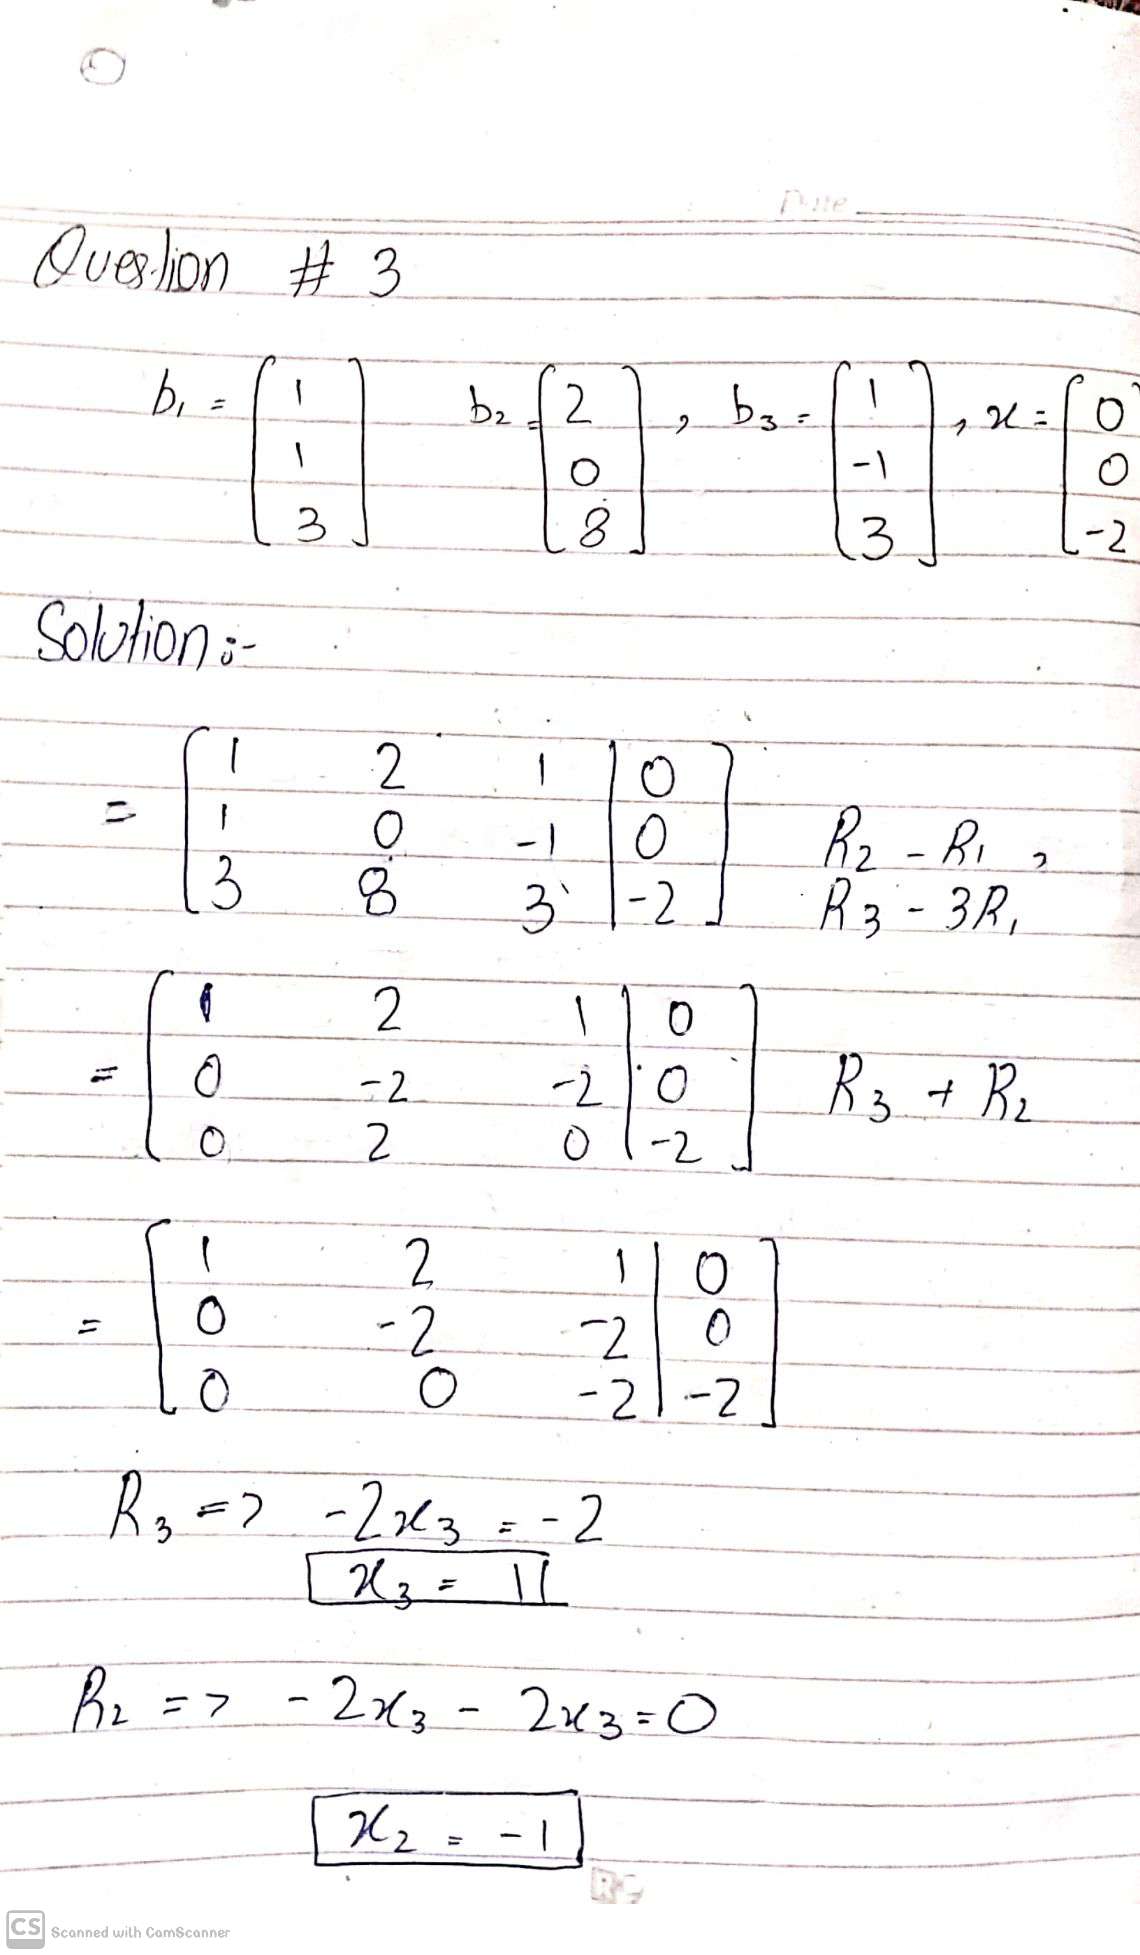 Date
Question # 3
b₁ = [1 1 3] b₂ = [2 0 8], b₃ = [1 -1 3], x = [0 0 -2
Solution :-
= [1 2 1 | 0]
[1 0 -1 | 0] R₂ - R₁,
[3 8 3 | -2] R₃ - 3R₁
= [1 2 1 | 0]
[0 -2 -2 | 0] R₃ + R₂
[0 2 0 | -2]
= [1 2 1 | 0]
[0 -2 -2 | 0]
[0 0 -2 | -2]
R₃ => -2x₃ = -2
x₃ = 1
R₂ => -2x₃ - 2x₃ = 0
x₂ = -1
CS Scanned with CamScanner